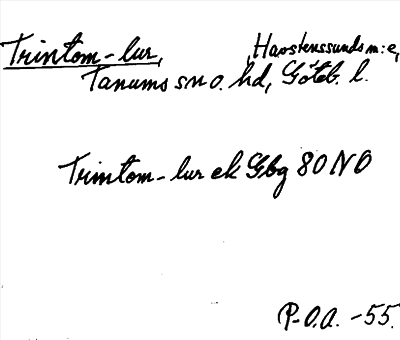 Trintom-lur, Havstenssunds m:e,
Tanums sn o. hd, Göteb. l.
Trintom-lur ek Gbg 80 NO
P-O.A. -55.